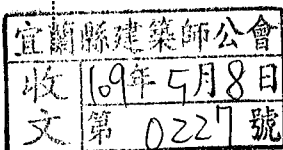 宜蘭縣建築師公會
收文
109年5月8日
第0227號